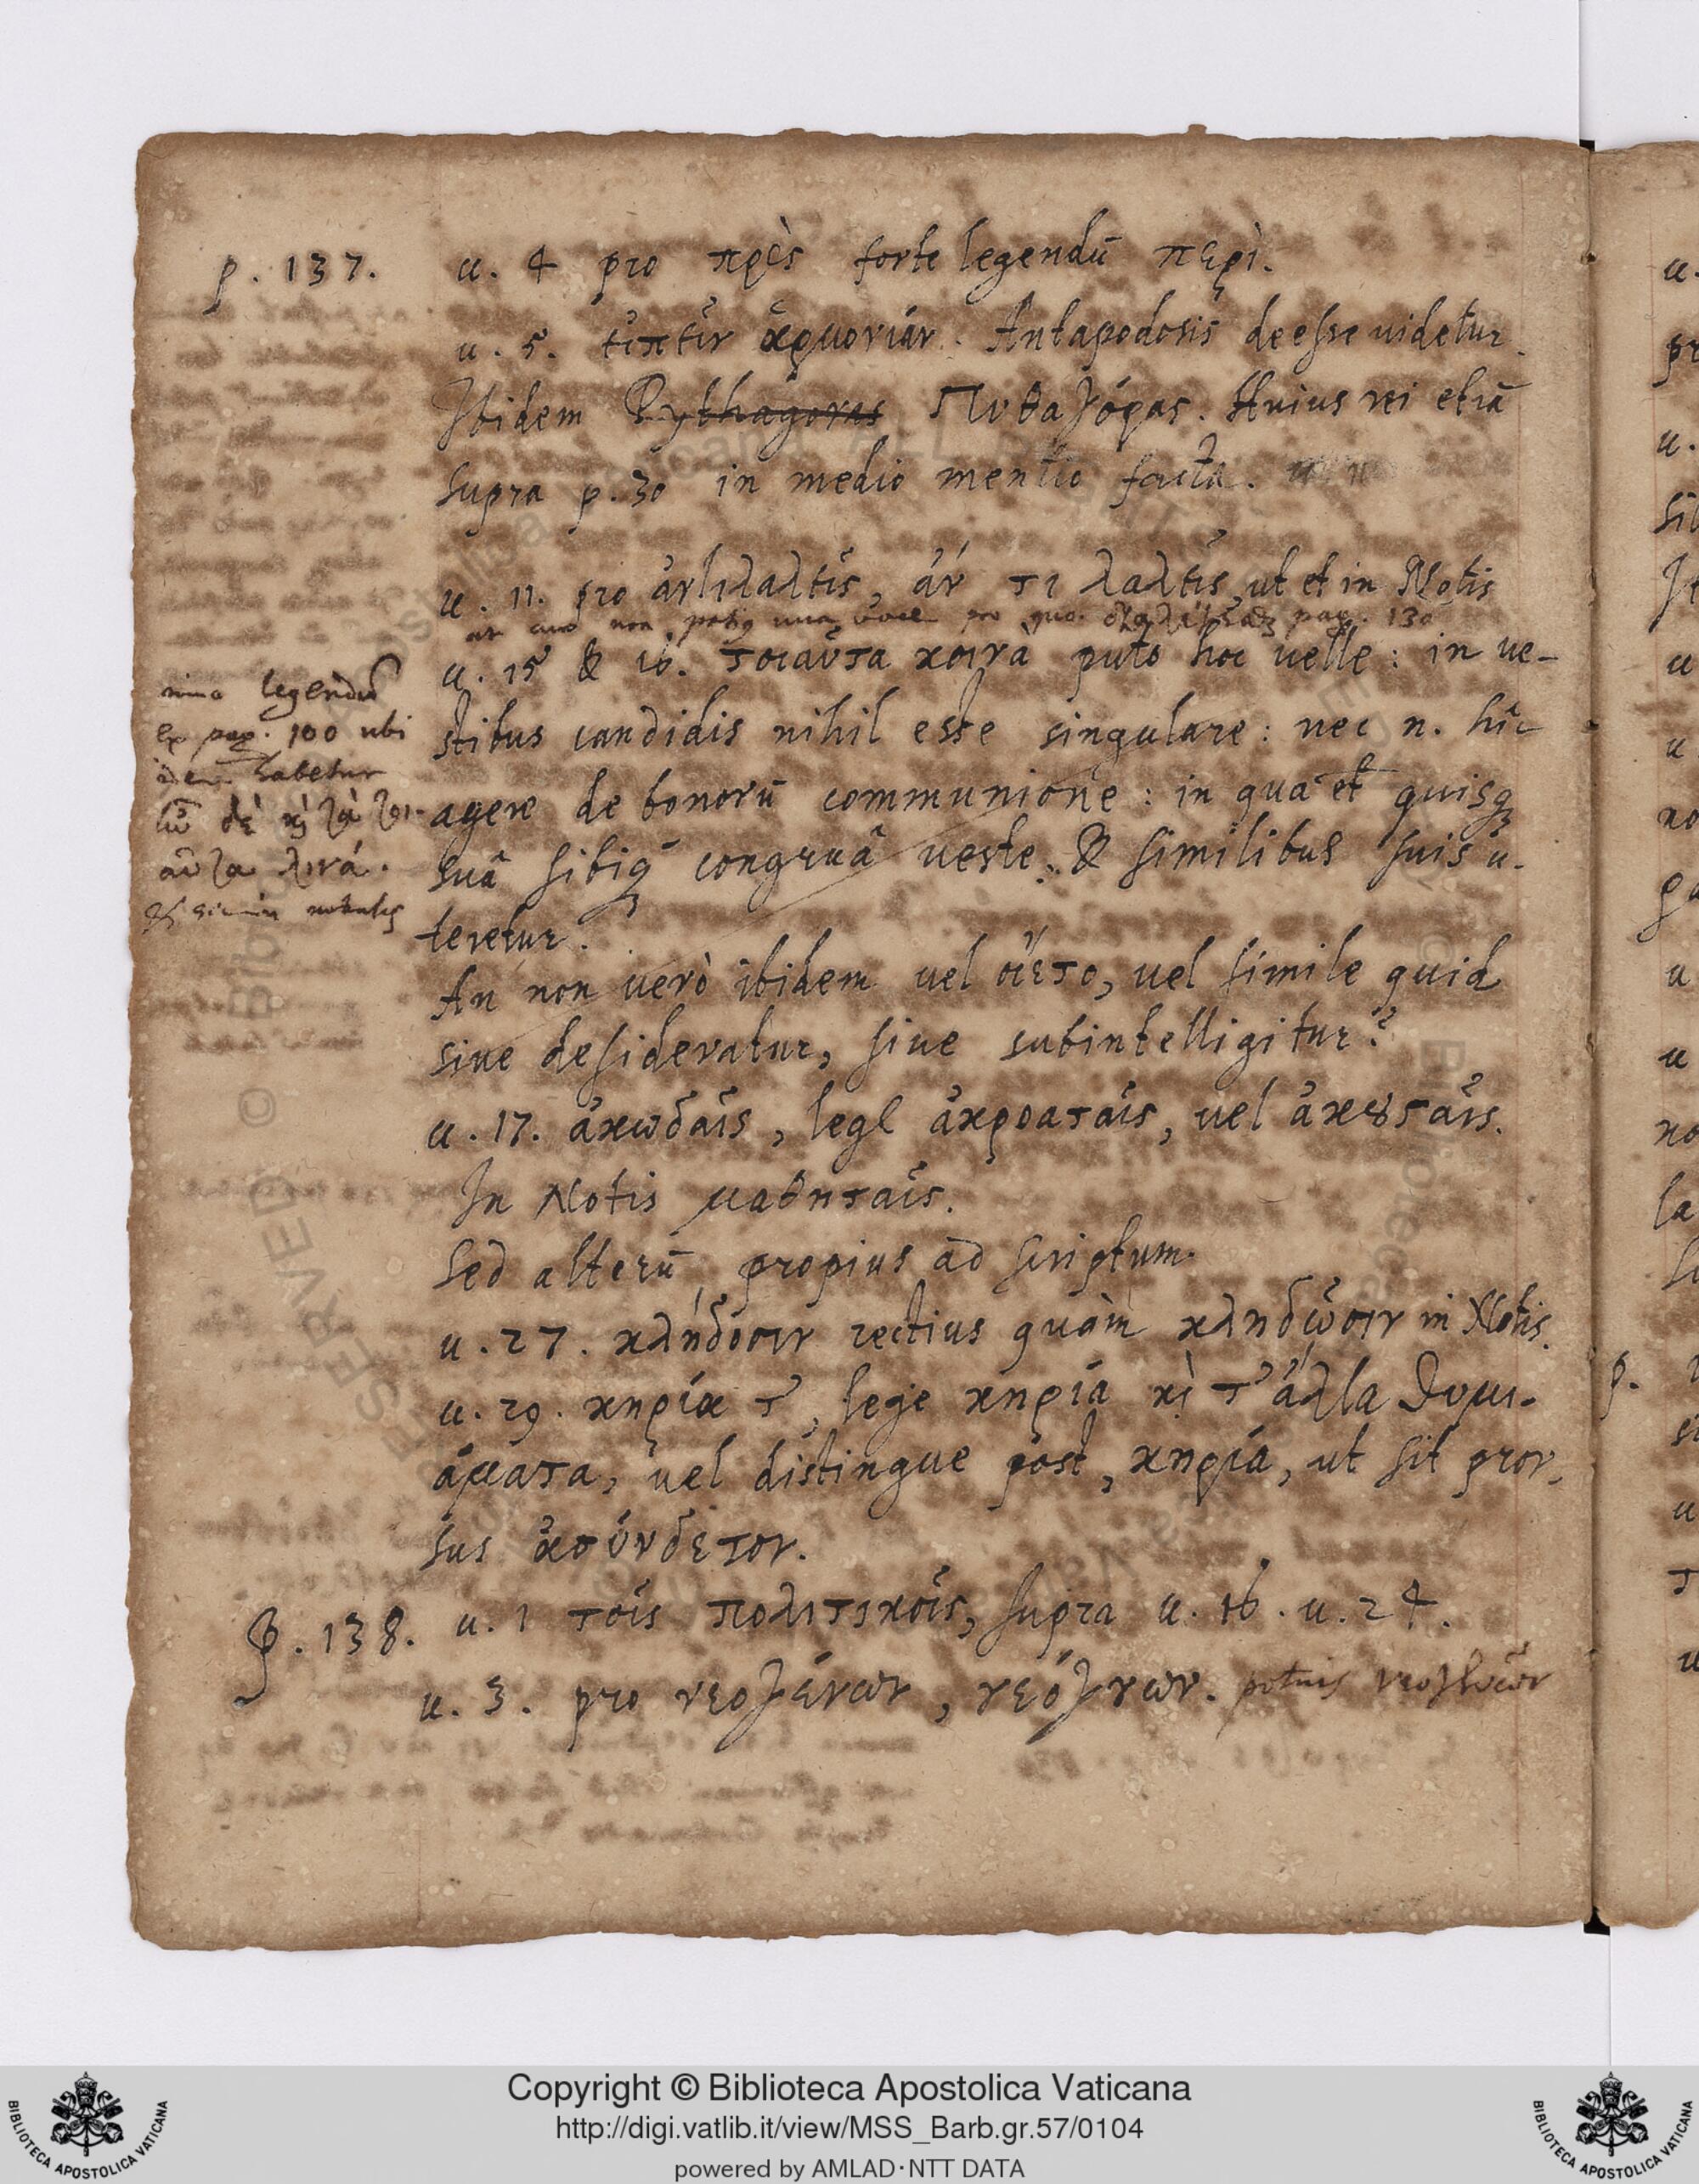 p. 137. u. 4 pro πρὸς forte legendū περὶ.
u. 5. εἰπεῖν ἁρμονίαν. Antapodosis deesse uidetur.
Ibidem Pythagoras Πυθαγόρας. Huius rei etiā
supra p. 30 in medio mentio facta.
u. 11. pro ἀντιλαλεῖς, ἄν τι λαλεῖς, ut et in Notis
non potius una uoce pro quo pag. 130
u. 15 & 16. τοιαῦτα κοινὰ puto hoc uelle: in ue-
stibus candidis nihil esse singulare: nec n. hîc
agere de bonorū communione: in qua et quisq
suâ sibiq congruâ ueste, & similibus suis u-
teretur.
imo legendū
ex pag. 100 ubi
idem habetur
ἦν δὲ κὶ τὰ τοι-
αῦτα λινά.
An non uerò ibidem uel ᾤετο, uel simile quid
siue desideratur, siue subintelligitur?
u. 17. ἀκωδαῖς, legl ἀκροαταῖς, uel ἀκουσταῖς.
In Notis μαθηταῖς.
Sed alterū propius ad scriptum.
u. 27. κλήδοσιν rectius quàm κληδῶσιν in Notis.
u. 29. κηρία τ', lege κηρία κὶ τ' ἄλλα θυμι-
άματα, uel distingue post, κηρία, ut sit pror-
sus ἀσύνδετον.
P. 138. u. 1 τοῖς πολιτικοῖς, supra u. 16. u. 24.
u. 3. pro νεογένων, νεόγνων. potius νεογενῶν
Copyright © Biblioteca Apostolica Vaticana
http://digi.vatlib.it/view/MSS_Barb.gr.57/0104
powered by AMLAD·NTT DATA
BIBLIOTECA APOSTOLICA VATICANA
BIBLIOTECA APOSTOLICA VATICANA